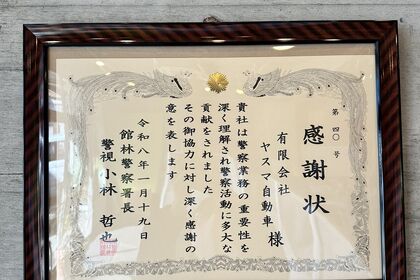 第四〇号
感謝状
有限会社
ヤスマ自動車 様
貴社は警察業務の重要性を
深く理解され警察活動に多大な
貢献をされました
その御協力に対し深く感謝の
意を表します
令和八年一月十九日
館林警察署長
警視 小林 哲也